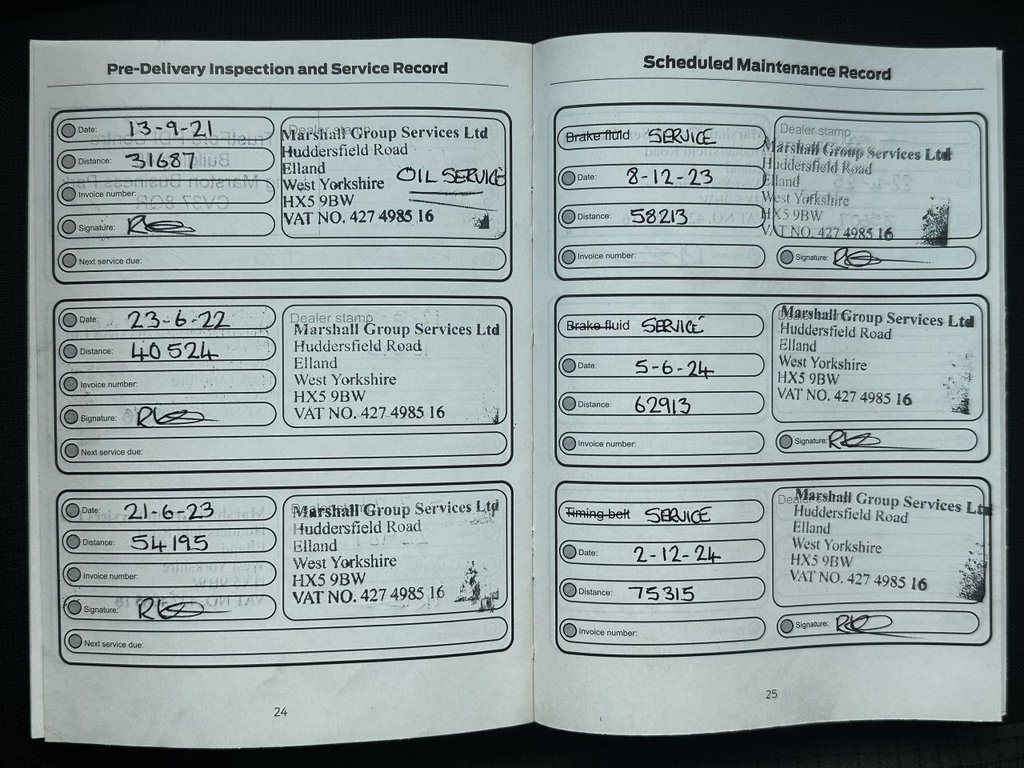 Pre-Delivery Inspection and Service Record
Date: 13-9-21
Distance: 31687
Invoice number:
Signature:
Next service due:
Dealer stamp
Marshall Group Services Ltd
Huddersfield Road
Elland
West Yorkshire
HX5 9BW
VAT NO. 427 4985 16
OIL SERVICE
Date: 23-6-22
Distance: 40524
Invoice number:
Signature:
Next service due:
Dealer stamp
Marshall Group Services Ltd
Huddersfield Road
Elland
West Yorkshire
HX5 9BW
VAT NO. 427 4985 16
Date: 21-6-23
Distance: 54195
Invoice number:
Signature:
Next service due:
Dealer stamp
Marshall Group Services Ltd
Huddersfield Road
Elland
West Yorkshire
HX5 9BW
VAT NO. 427 4985 16
24
Scheduled Maintenance Record
Brake fluid SERVICE
Date: 8-12-23
Distance: 58213
Invoice number:
Dealer stamp
Marshall Group Services Ltd
Huddersfield Road
Elland
West Yorkshire
HX5 9BW
VAT NO. 427 4985 16
Signature:
Brake fluid SERVICE
Date: 5-6-24
Distance: 62913
Invoice number:
Dealer stamp
Marshall Group Services Ltd
Huddersfield Road
Elland
West Yorkshire
HX5 9BW
VAT NO. 427 4985 16
Signature:
Timing belt SERVICE
Date: 2-12-24
Distance: 75315
Invoice number:
Dealer stamp
Marshall Group Services Ltd
Huddersfield Road
Elland
West Yorkshire
HX5 9BW
VAT NO. 427 4985 16
Signature:
25